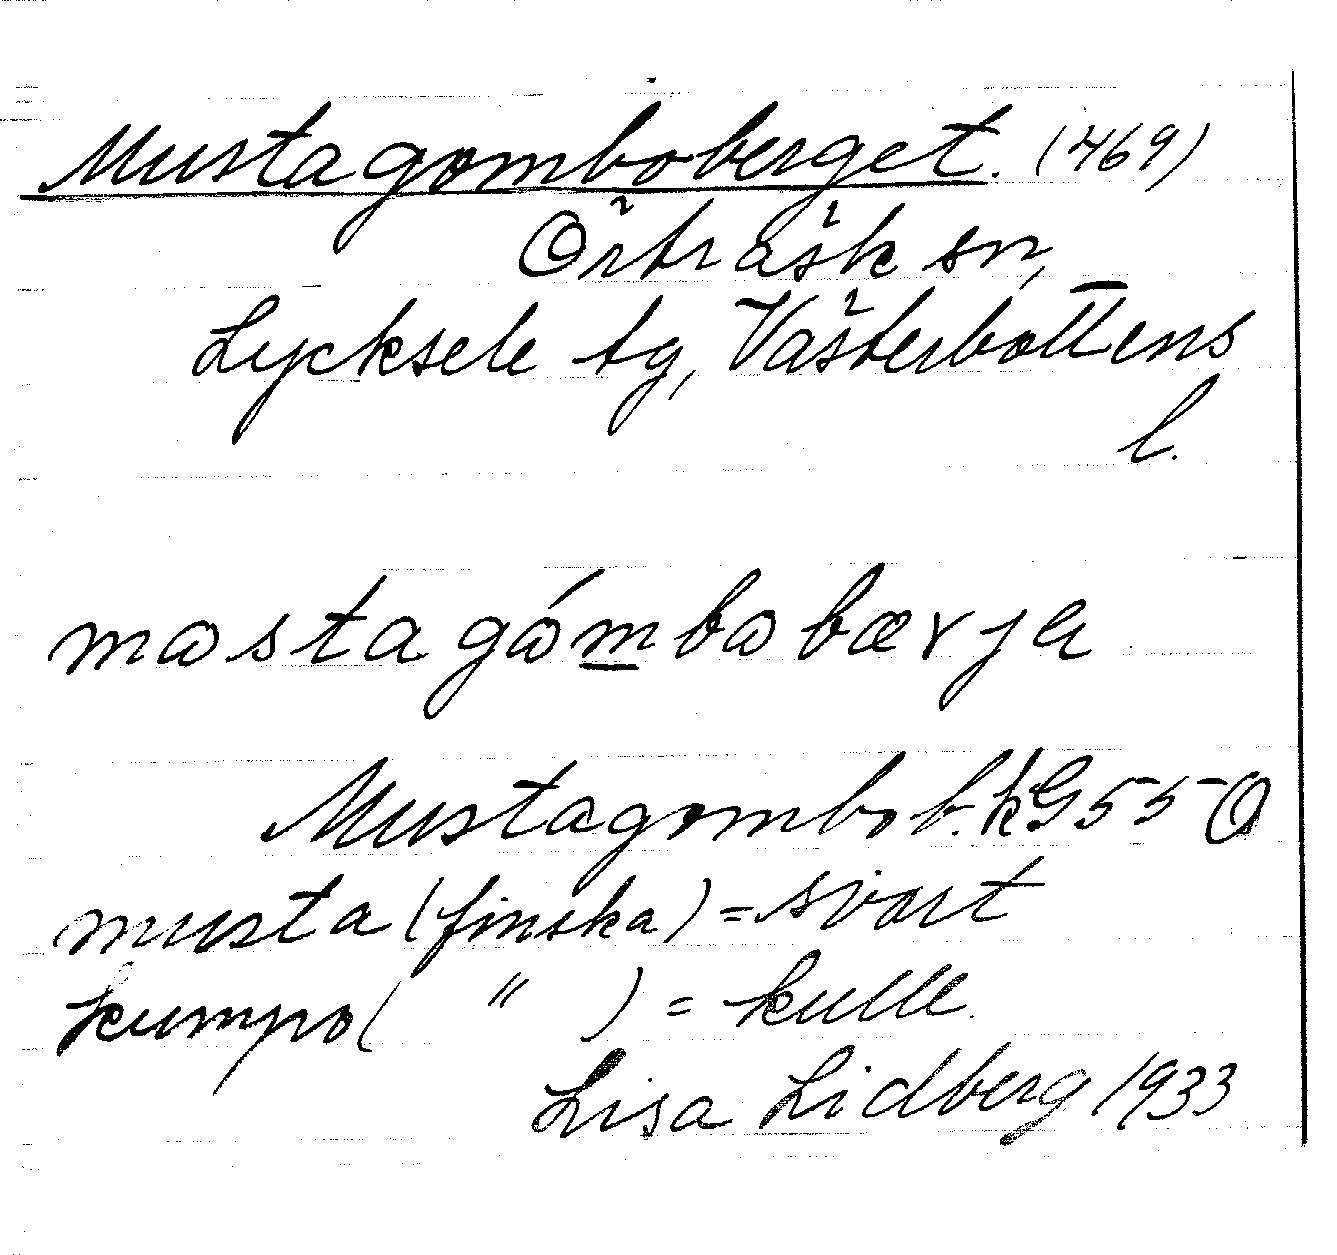 Mustagomboberget. (469)
Örträsk sn,
Lycksele tg, Västerbottens
l.
mɷstagɷ́mbɷbærjɐ
Mustagombob. kG 55 Ö
musta (finska) = svart
kumpo ( " ) = kulle.
Lisa Lidberg 1933